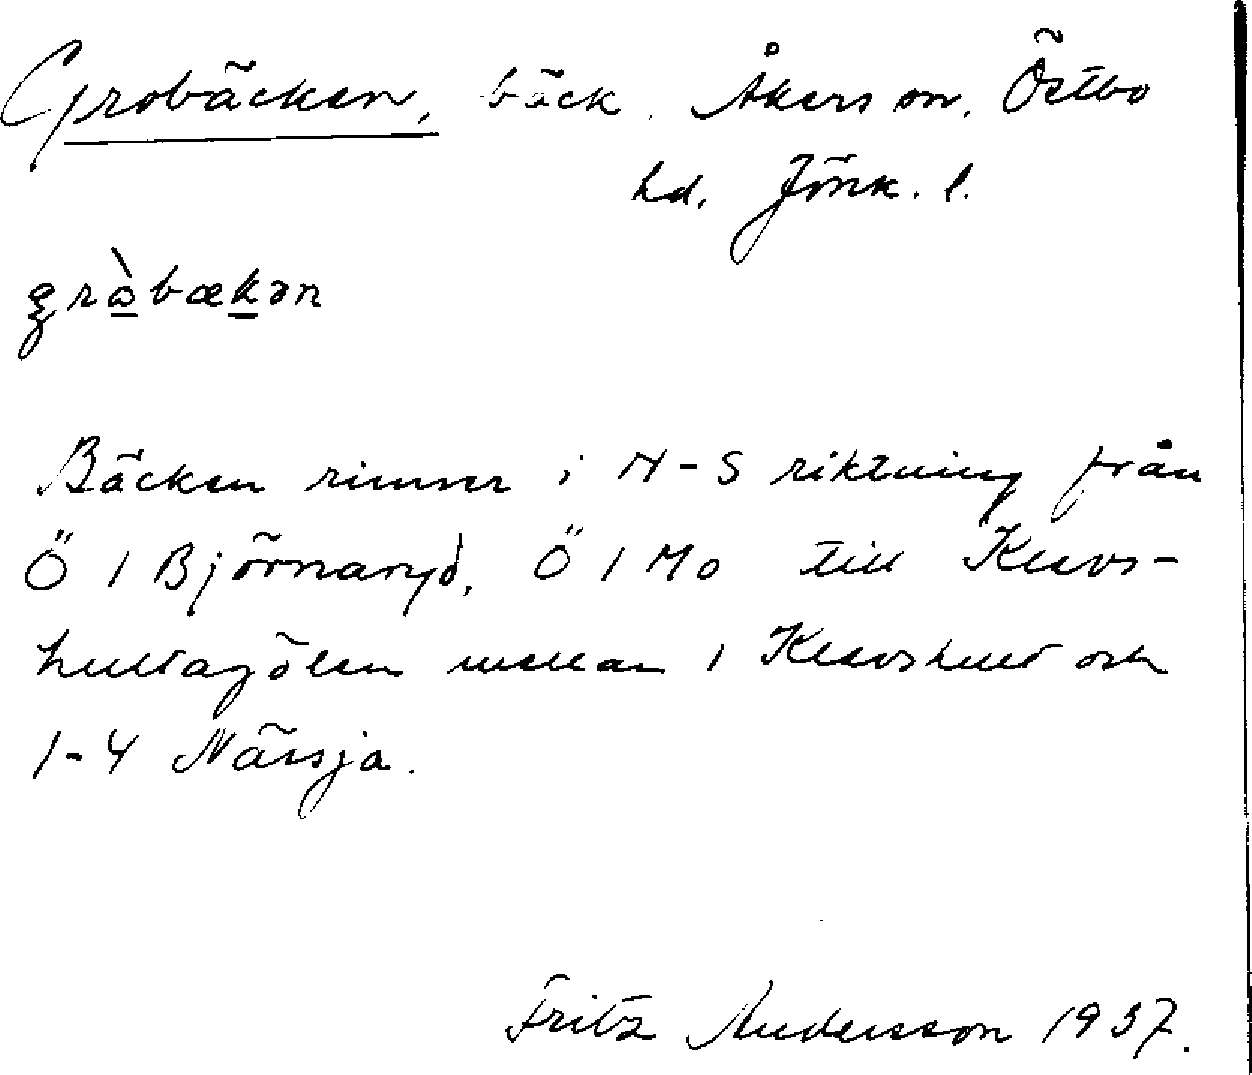 Grobäcken, bäck. Åkers sn. Östbo
hd. Jönk. l.
gròbækən
Bäcken rinner i N-S riktning från
Ö 1 Björnaryd, Ö 1 Mo till Klevs-
hultagölen mellan 1 Klevshult och
1-4 Nässja.
Fritz Andersson 1937.